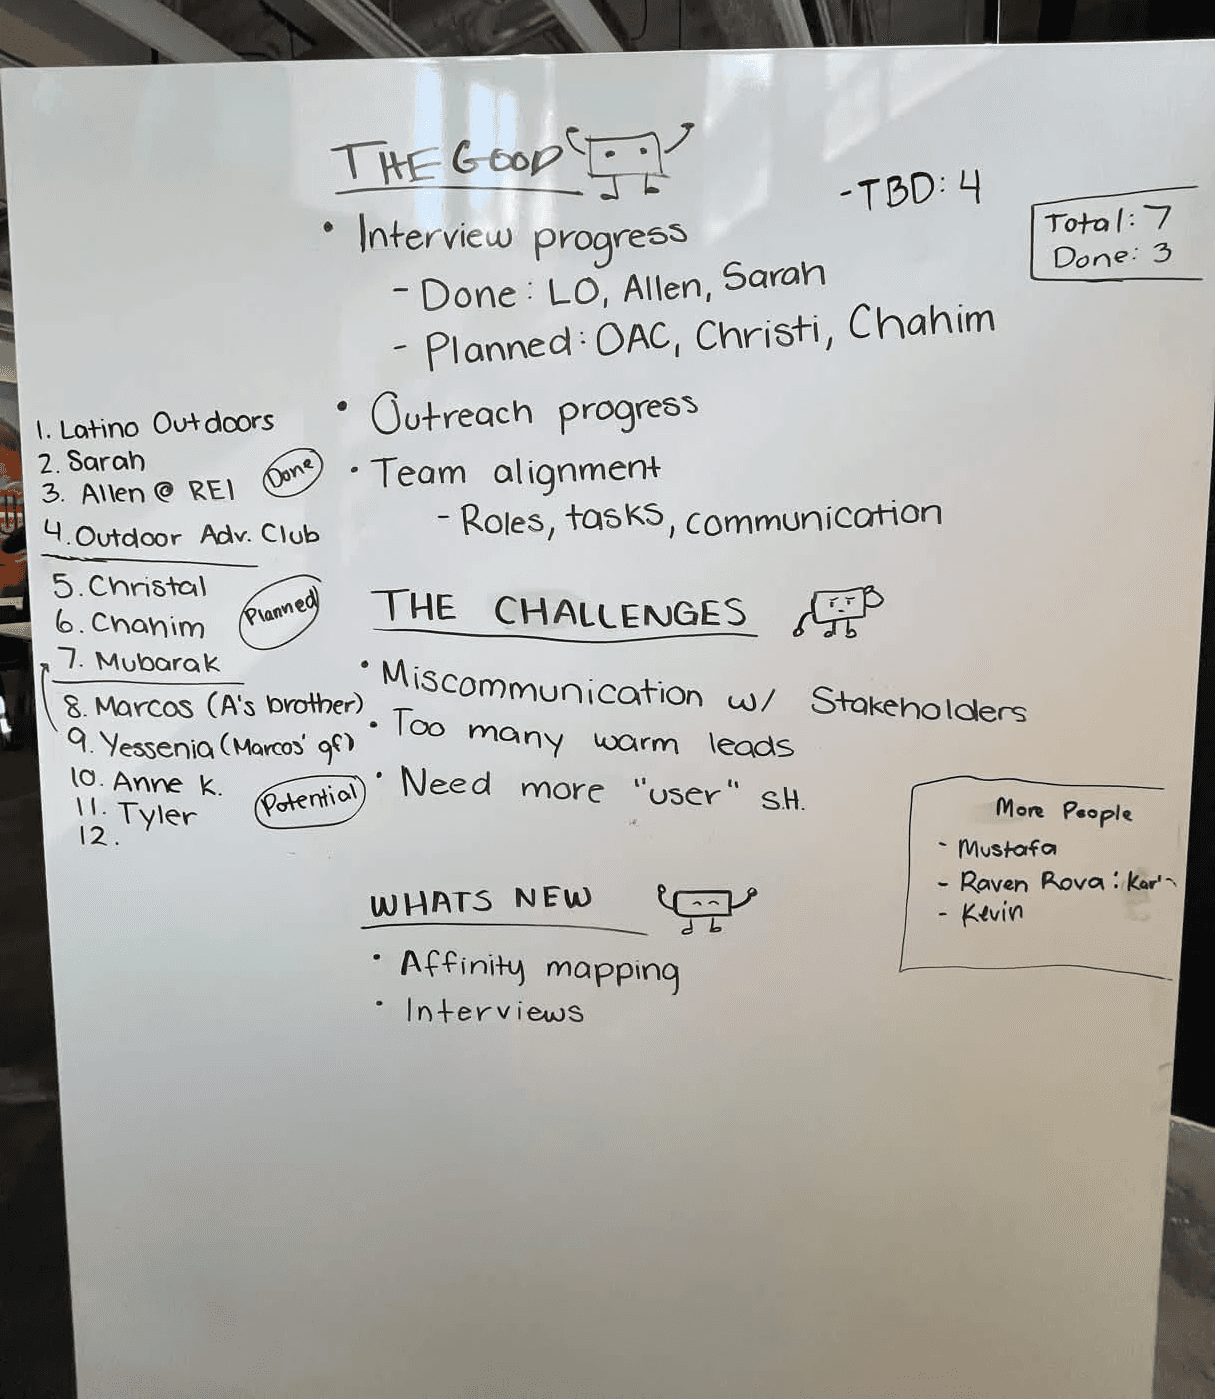 THE GOOD
- TBD: 4
Total: 7
Done: 3
• Interview progress
- Done: LO, Allen, Sarah
- Planned: OAC, Christi, Chahim
• Outreach progress
• Team alignment
- Roles, tasks, communication
1. Latino Outdoors
2. Sarah
3. Allen @ REI
Done
4. Outdoor Adv. Club
5. Christal
6. Chahim
Planned
7. Mubarak
8. Marcos (A's brother)
9. Yessenia (Marcos' gf)
10. Anne K.
11. Tyler
Potential
12.
THE CHALLENGES
• Miscommunication w/ Stakeholders
• Too many warm leads
• Need more "user" S.H.
More People
- Mustafa
- Raven Rova:
- Kevin
WHATS NEW
• Affinity mapping
• Interviews